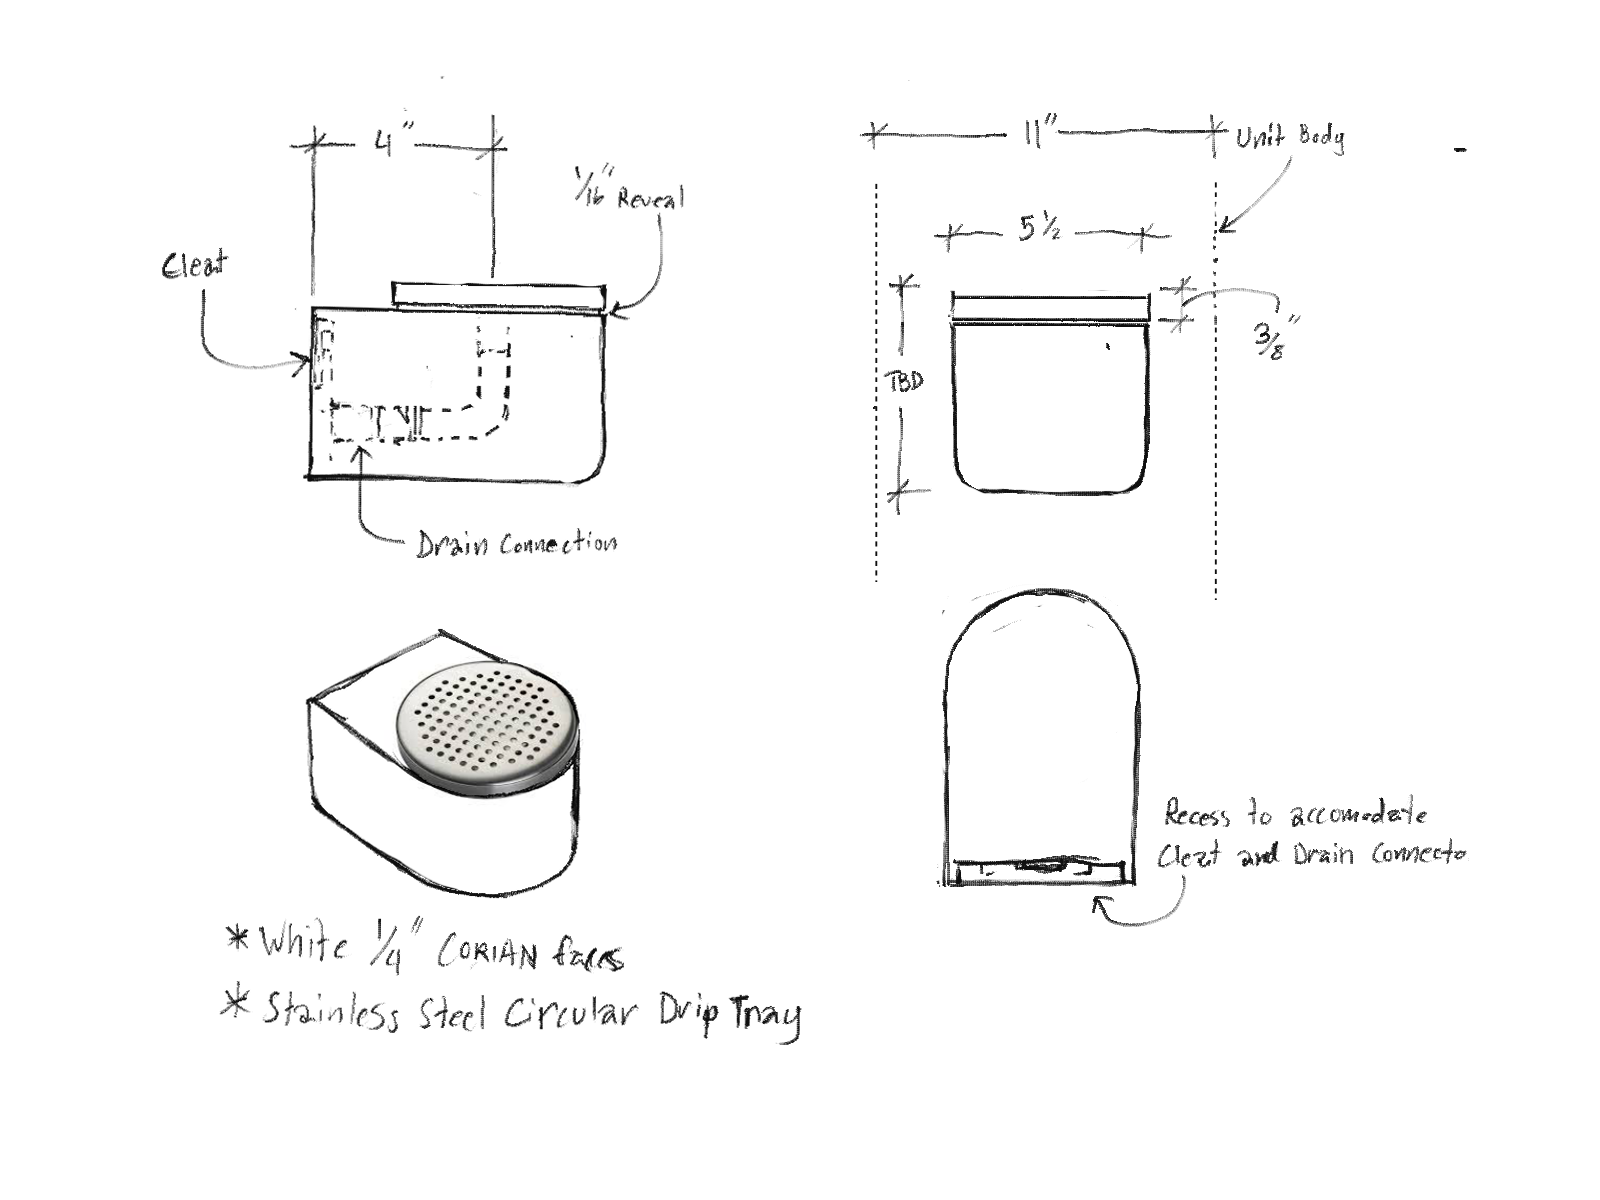 4"
1/16" Reveal
Cleat
Drain Connection
11"
Unit Body
5 1/2
TBD
3/8"
Recess to accomodate
Cleat and Drain Connecto
* White 1/4" CORIAN faces
* Stainless Steel Circular Drip Tray